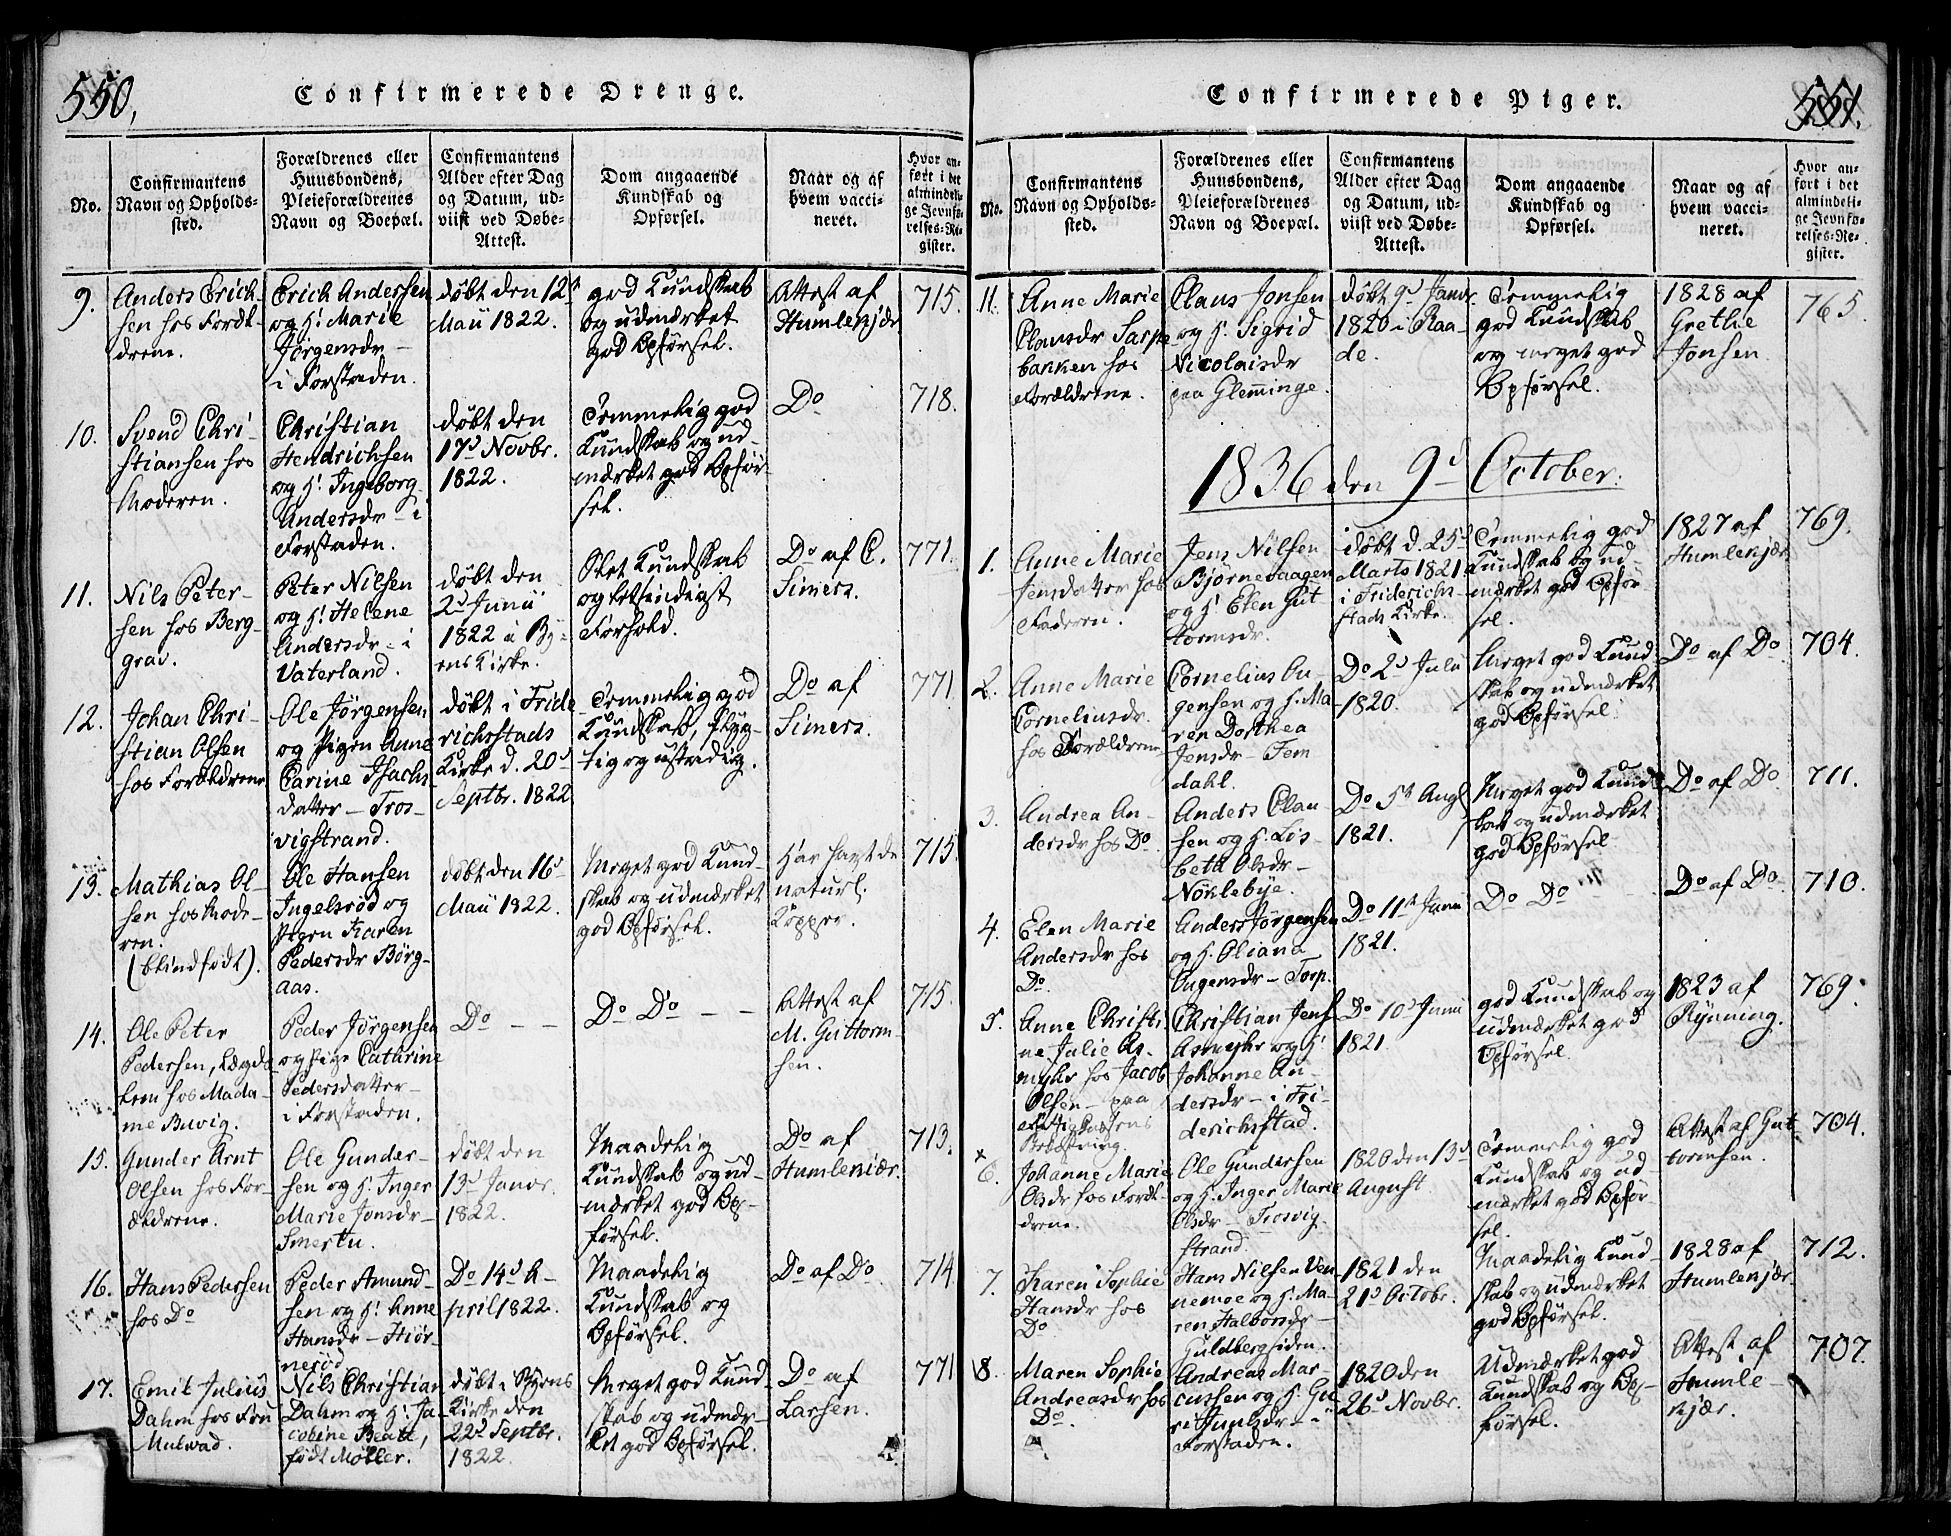 550,
Confirmerede Drenge.
No.
Confirmantens
Navn og Opholds-
sted.
Forældrenes eller
Huusbondens,
Pleieforældrenes
Navn og Boepæl.
Confirmantens
Alder efter Dag
og Datum, ud-
viist ved Døbe-
Attest.
Dom angaaende
Kundskab og
Opførsel.
Naar og af
hvem vacci-
neret.
Hvor an-
ført i det
almindeli-
ge Jevnfø-
relses-Re-
gister.
9.
Anders Erich-
sen hos Foræl-
drene.
Erich Andersen
og H. Marie
Jørgensdr -
i Forstaden.
døbt den 12te
Maii 1822.
god Kundskab
og udmærket
god Opførsel.
Attest af
Humlekjær
715.
10.
Svend Chri-
stiansen hos
Moderen.
Christian
Hendrichsen
og H. Ingeborg
Andersdr - i
Forstaden.
døbt den
17d Novbr.
1822.
Temmelig god
Kundskab og ud-
mærket god Opfør-
sel.
Do
718.
11.
Nils Peter-
sen hos Berg-
grav.
Peter Nilsen
og H. Helene
Andersdr - i
Vaterland.
døbt den
2d Junii
1822 i By-
ens Kirke.
Slet Kundskab
og letsindigst
Forhold.
Do af C.
Simers.
771.
12.
Johan Chri-
stian Olsen
hos Forældrene
Ole Jørgensen
og Pigen Anne
Carine Isachs
datter - Tros-
vigstrand.
døbt i Fride
richsstads
Kirke d. 20d
Septbr. 1822
Temmelig god
Kundskab, flyg-
tig og ustadig.
Do af
Simers.
771.
13.
Mathias Ol-
sen hos Mode-
ren.
(blindfødt).
Ole Hansen
Ingelsrød og
Pigen Karen
Pedersdr Börg-
aas.
døbt den 16d
Maii 1822.
Meget god Kund-
skab og udmærket
god Opførsel.
Har havt de
naturl.
Kopper.
715.
14.
Ole Peter
Pedersen, Lægds
lem hos Mada-
me Buvig.
Peder Jørgensen
og Pige Cathrine
Pedersdatter -
i Forstaden.
Do - -
Do Do - -
Attest af
M. Guttorm-
sen.
715.
15.
Gunder Arnt
Olsen hos For-
ældrene.
Ole Gunder-
sen og H. Inger
Marie Jonsdr -
Smertu.
døbt den
13d Janvr.
1822.
Maadelig
Kundskab og ud-
mærket god Op-
førsel.
Do af
Humlekiær.
713.
16.
Hans Pedersen
hos Do
Peder Amund-
sen og H. Anne
Hansdr - Hiør-
nerød
Do 14d A-
pril 1822.
Maadelig
Kundskab og
Opførsel.
Do af Do
714.
17.
Emil Julius
Dahm hos Fru
Mulvad.
Nils Christian
Dahm og H. Ja-
cobine Beate,
født Møller.
døbt i Byens
Kirke den
22d Septbr.
1822.
Meget god Kund-
skab og udmær-
ket god Opførsel.
Do af
Larsen.
771
551.
Confirmerede Piger.
No.
Confirmantens
Navn og Opholds-
sted.
Forældrenes eller
Huusbondens,
Pleieforældrenes
Navn og Boepæl.
Confirmantens
Alder efter Dag
og Datum, ud-
viist ved Døbe-
Attest.
Dom angaaende
Kundskab og
Opførsel.
Naar og af
hvem vacci-
neret.
Hvor an-
ført i det
almindeli-
ge Jevnfø-
relses-Re-
gister.
11.
Anne Marie
Clausdr Sarpe
banken hos
Forældrene.
Claus Jonsen
og H. Sigrid
Nicolaisdr
paa Glemminge.
døbt 9d Janvr
1820 i Raa-
de.
Temmelig
god Kundskab
og meget god
Opførsel.
1828 af
Grethe
Jonsen.
765
1836 den 9d October.
1.
Anne Marie
Jensdatter hos
Faderen.
Jens Nilsen
Bjørnevaagen
og H. Elen Gut
tormsdr.
døbt d. 25d
Marts 1821
i Friderichs-
stads Kirke.
Temmelig god
Kundskab og ud-
mærket god Opfør-
sel.
1827 af
Humlekjær
769.
2.
Anne Marie
Corneliusdr.
hos Forældrene
Cornelius Au-
gensen og H. Ma
ren Dorthea
Jensdr - Fem
dahl.
Do 2d Juli
1820.
Meget god Kund-
skab og udmærket
god Opførsel.
Do af Do.
704.
3.
Andrea An-
dersdr hos Do.
Anders Clau
sen og H. Lis-
beth Olsdr -
Nøklebye.
Do 5te Aug.
1821.
Meget god Kund-
skab og udmærket
god Opførsel
Do af Do
711.
4.
Elen Marie
Andersdr hos
Do.
Anders Jørgensen
og H. Oliana
Augensdr - Torp.
Do 11te Junii
1821.
Do Do -
Do af Do.
710.
5.
Anne Christi-
ne Julie As-
myhr hos Jacob
Olsen - paa
Christian Jens
Asmyhr og H.
Johanne An-
dersdr - i Fri-
derichsstad.
Do 10d Junii
1821.
god Kundskab og
udmærket god
Opførsel.
1823 af
Rynning.
769.
x
6.
Johanne Marie
Olsdr hos Foræl-
drene.
Ole Gundersen
og H. Inger Marie
Olsdr - Trosvig-
strand.
1820 den 13d
August
Temmelig god
Kundskab og ud-
mærket god Opfør-
sel.
Attest af Gut
tormsen.
704.
7.
Karen Sophie
Hansdr hos
Do
Hans Nilsen Ven-
nemoe og H. Ma-
ren Halvorsdr -
Guldbergsiden.
1821 den
21d Octobr.
Maadelig Kund-
skab og udmærket
god Opførsel.
1828 af
Humlekjær.
712.
8.
Maren Sophie
Andreasdr hos
Do.
Andreas Mar-
cussen og H. Gu-
ri - i
Forstaden.
1820 den
26d Novbr.
Udmærket god
Kundskab og Op-
førsel.
Attest af
Humle-
kjær.
707.